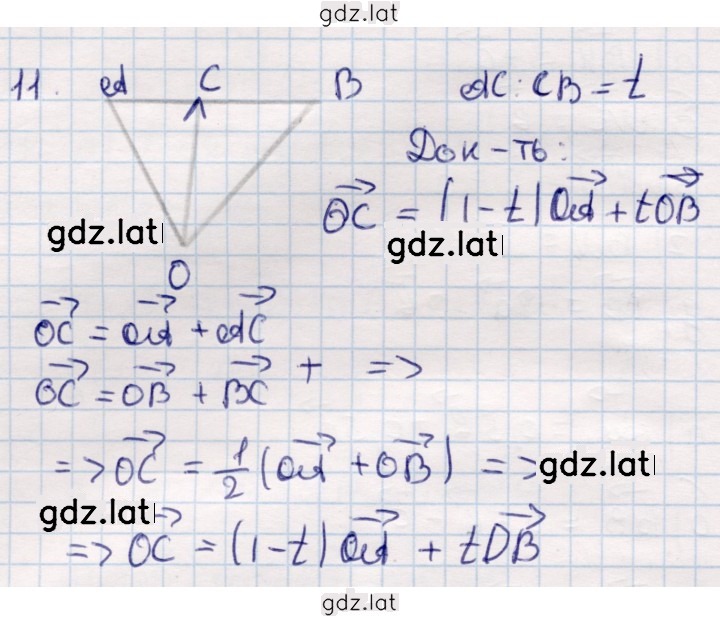 gdz.lat
11. A C B AC : CB = t
Док-ть:
OC = (1-t)OA + tOB
gdz.lat gdz.lat
O
OC = OA + AC
OC = OB + BC + =>
=> OC = 1/2 (OA + OB) => gdz.lat
gdz.lat
=> OC = (1-t) OA + tDB
gdz.lat